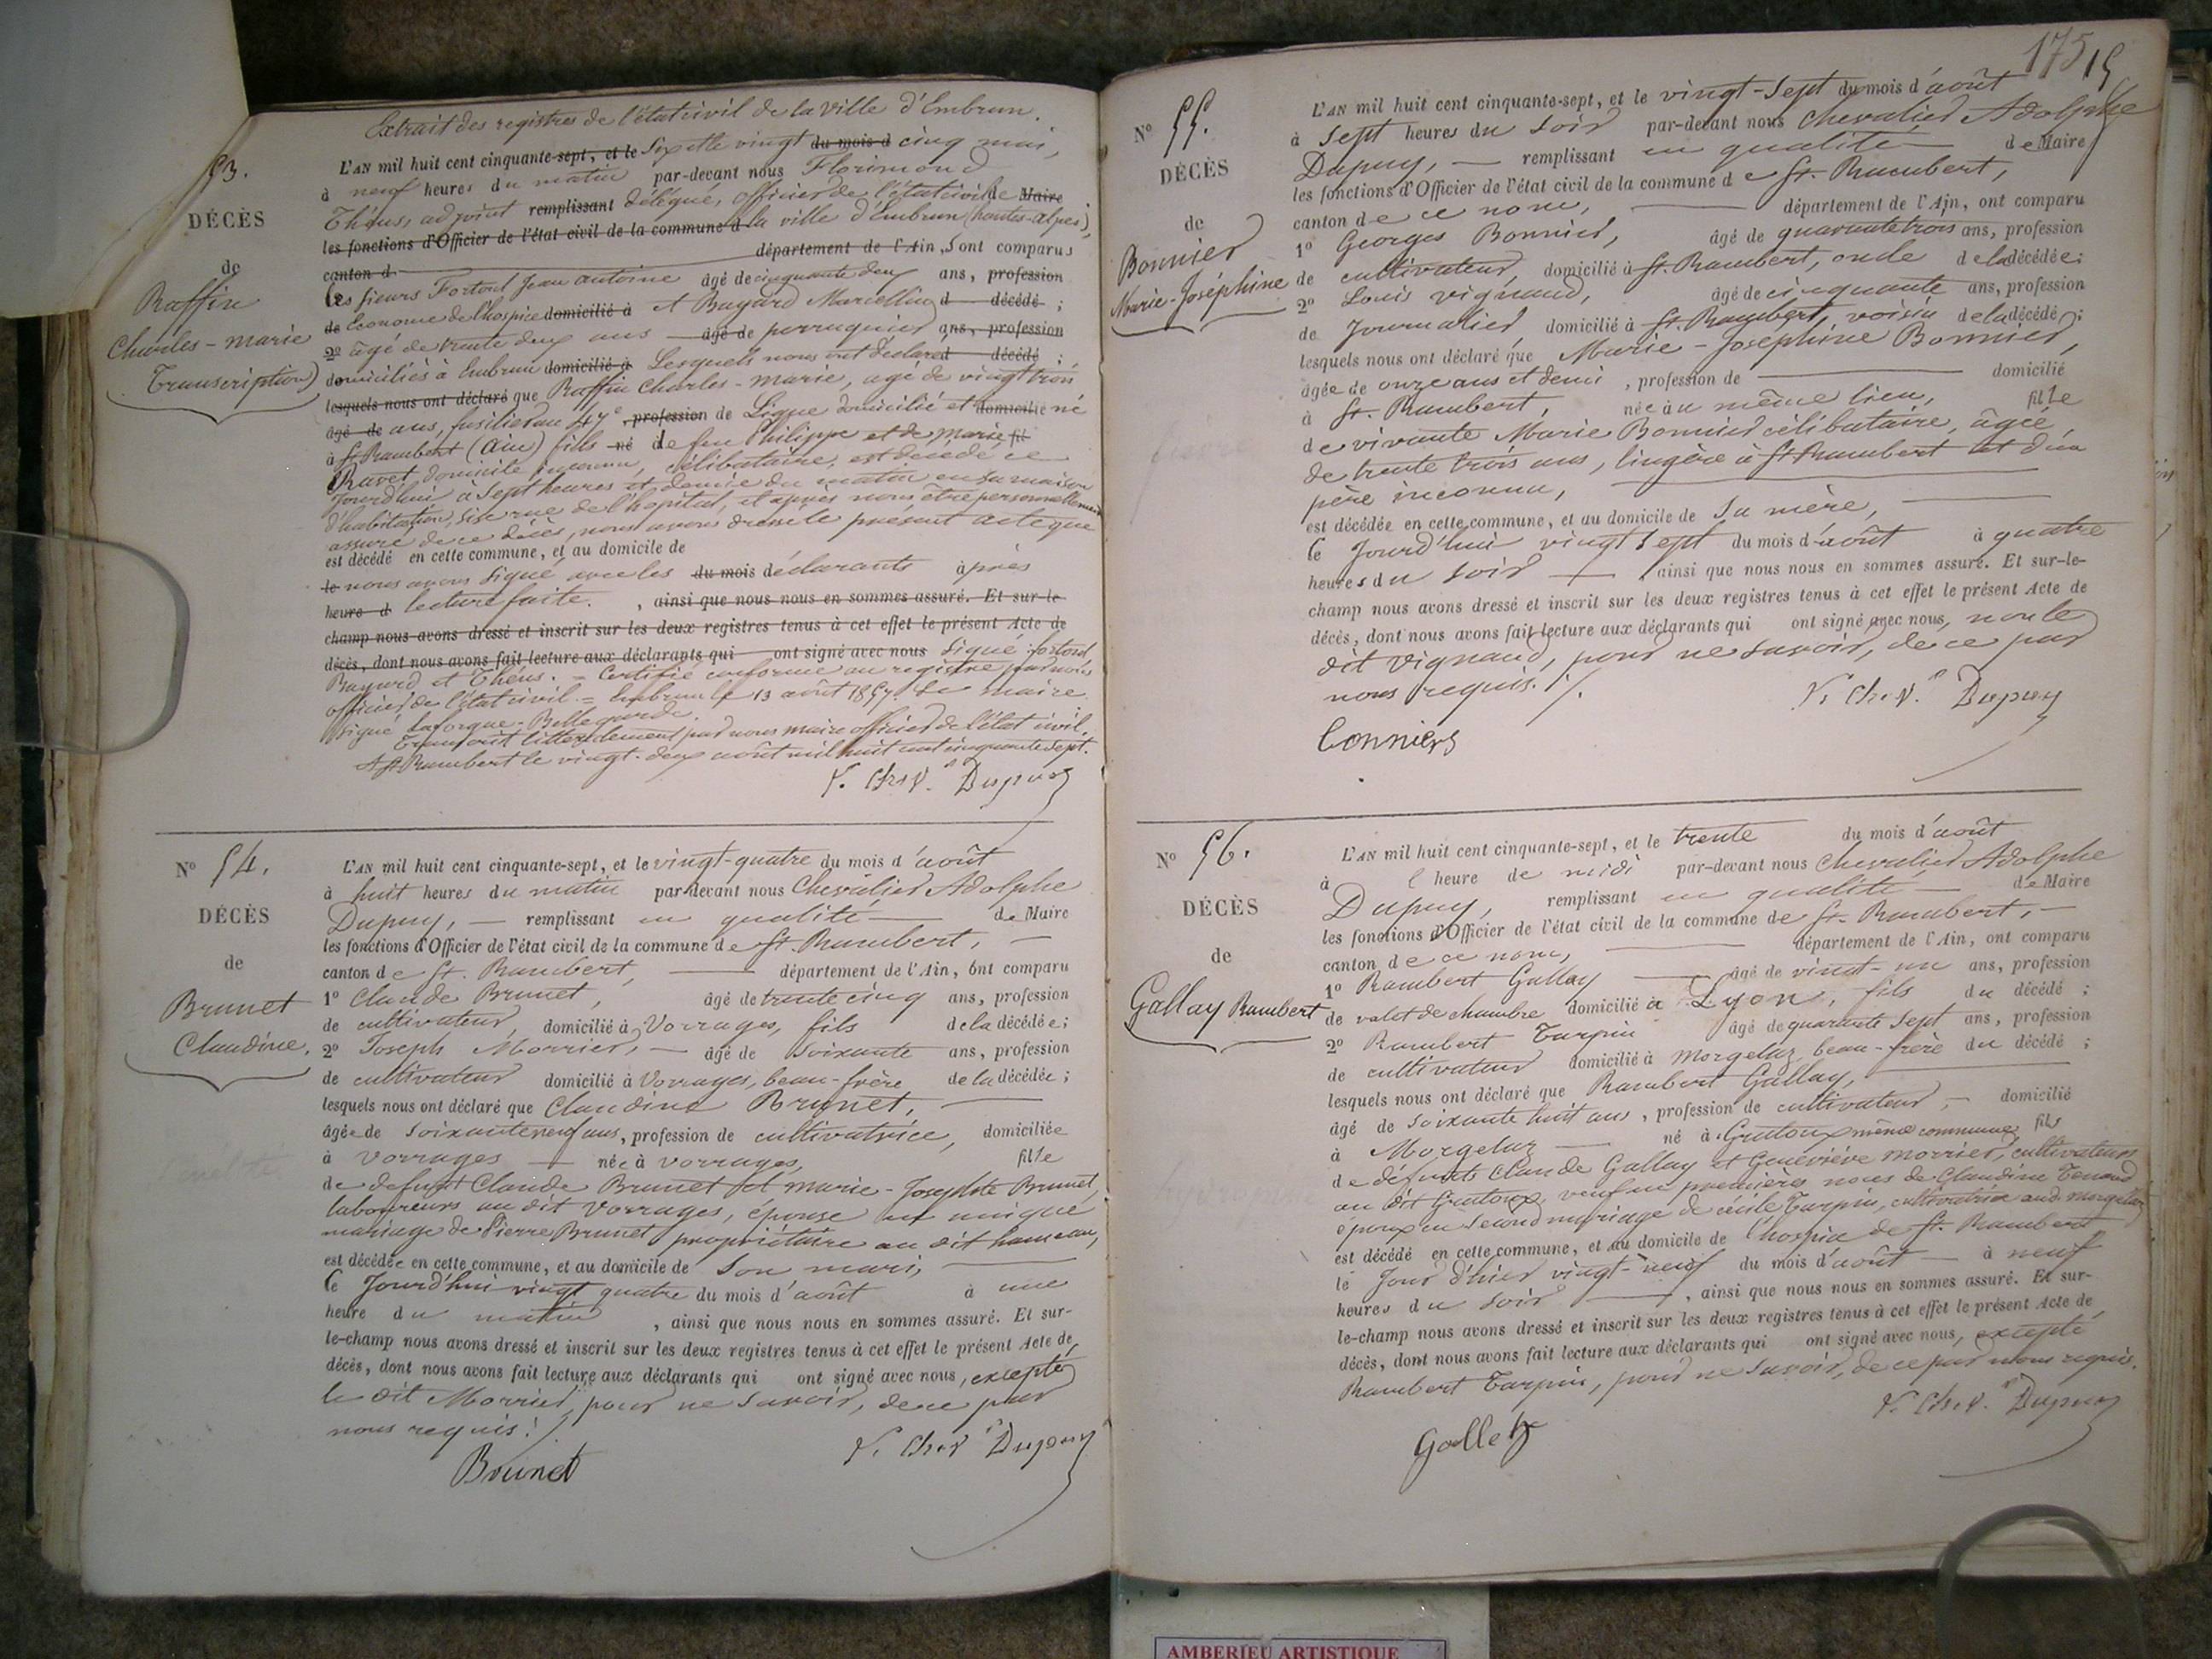 Extrait des registres de l'état civil de la ville d'Embrun.
53.
DÉCÈS
de
Raffin
Charles-marie
(Transcription)
L'AN mil huit cent cinquante-sept, et le Six et le vingt du mois d cinq mai,
à neuf heures du matin par-devant nous Florimond
Théus, adjoint remplissant délégué, officier de l'état civil de Maire
les fonctions d'Officier de l'état civil de la commune d la ville d'Embrun (hautes-alpes),
canton d département de l'Ain, Sont comparus
les sieurs Fortoul Jean antoine âgé de cinquante deux ans, profession
de Econome de l'hospice domicilié à et Bayard Marcellin d décédé ;
2º âgé de trente deux ans âgé de perruquier ans, profession
domiciliés à Embrun domicilié à Lesquels nous ont déclaré d décédé ;
lesquels nous ont déclaré que Raffin Charles-marie, agé de vingt trois
âgé de ans, fusilier au 47e profession de Ligne domicilié et domicilié né
à St Rambert (ain) fils né de feu Philippe et de marie fil
Ravet domicile inconnu, célibataire, est décédé ce
Jourd'hui à Sept heures et demie du matin en sa maison
d'habitation, sise rue de l'hopital, et après nous être personnellement
assuré de ce décès, nous avons dressé le présent acte que
est décédé en cette commune, et au domicile de
le nous avons signé avec les du mois déclarants après
heure d lecture faite. , ainsi que nous nous en sommes assuré. Et sur-le-
champ nous avons dressé et inscrit sur les deux registres tenus à cet effet le présent Acte de
décès, dont nous avons fait lecture aux déclarants qui ont signé avec nous Signé: fortoul
Bayard et Théus. = Certifié conforme au registre par nous
officier de l'état civil = Embrun le 13 août 1857. Le maire
signé Laforgue-Bellegarde.
Transcrit littéralement par nous maire officier de l'état civil.
A St Rambert le vingt-deux août mil huit cent cinquante sept.
V. Cher. Dupuy
Nº 54.
DÉCÈS
de
Brunet
Claudine.
L'AN mil huit cent cinquante-sept, et le vingt-quatre du mois d'août
à huit heures du matin par-devant nous Chevalier Adolphe
Dupuy, — remplissant en qualité — de Maire
les fonctions d'Officier de l'état civil de la commune de St. Rambert, —
canton de St. Rambert, département de l'Ain, ont comparu
1º Claude Brunet, âgé de trente cinq ans, profession
de cultivateur, domicilié à Vorrages, fils de la décédée;
2º Joseph Morrier, — âgé de Soixante ans, profession
de cultivateur domicilié à Vorrages, beau-frère de la décédée ;
lesquels nous ont déclaré que Claudine Brunet, —
âgée de Soixante neuf ans, profession de cultivatrice, domiciliée
à Vorrages — née à Vorrages, fille
de defunt Claude Brunet et marie-Josephte Brunet,
laboureurs au dit Vorrages, épouse en unique
mariage de Pierre Brunet propriétaire au dit hameau,
est décédée en cette commune, et au domicile de Son mari,
le Jourd'hui vingt quatre du mois d'août à une
heure du matin , ainsi que nous nous en sommes assuré. Et sur-
le-champ nous avons dressé et inscrit sur les deux registres tenus à cet effet le présent Acte de
décès, dont nous avons fait lecture aux déclarants qui ont signé avec nous, excepté
le dit Morrier, pour ne Savoir, de ce par
nous requis./.
Brunet
V. Cher. Dupuy
175
15
Nº 55.
DÉCÈS
de
Bonnier
Marie-Joséphine
L'AN mil huit cent cinquante-sept, et le vingt-Sept du mois d'août
à Sept heures du Soir par-devant nous Chevalier Adolphe
Dupuy, — remplissant en qualité de Maire
les fonctions d'Officier de l'état civil de la commune de St. Rambert,
canton de ce nom, département de l'Ain, ont comparu
1º Georges Bonnier, âgé de quarante trois ans, profession
de cultivateur, domicilié à St. Rambert, oncle de la décédée;
2º Louis Vignaud, âgé de cinquante ans, profession
de Journalier domicilié à St. Rambert, voisin de la décédé ;
lesquels nous ont déclaré que Marie-Joséphine Bonnier,
âgée de onze ans et demi , profession de — domicilié
à St. Rambert, née au même lieu, fille
de vivante Marie Bonnier célibataire, âgée,
de trente trois ans, lingère à St Rambert et d'un
père inconnu,
est décédée en cette commune, et au domicile de Sa mère,
le Jourd'hui vingt Sept du mois d'août à quatre
heures du Soir — , ainsi que nous nous en sommes assuré. Et sur-le-
champ nous avons dressé et inscrit sur les deux registres tenus à cet effet le présent Acte de
décès, dont nous avons fait lecture aux déclarants qui ont signé avec nous, non le
dit Vignaud, pour ne Savoir, de ce par
nous requis./.
V. Cher. Dupuy
Bonniers
Nº 56.
DÉCÈS
de
Gallay Rambert
L'AN mil huit cent cinquante-sept, et le trente du mois d'août
à l heure de midi par-devant nous Chevalier Adolphe
Dupuy, remplissant en qualité — de Maire
les fonctions d'Officier de l'état civil de la commune de St. Rambert, —
canton de ce nom, département de l'Ain, ont comparu
1º Rambert Gallay — âgé de vingt-un ans, profession
de valet de chambre domicilié à Lyon, fils du décédé ;
2º Rambert Turpin âgé de quarante Sept ans, profession
de cultivateur domicilié à Morgelaz, beau-frère du décédé ;
lesquels nous ont déclaré que Rambert Gallay,
âgé de Soixante huit ans, profession de cultivateur, — domicilié
à Morgelaz — né à Grattoux même commune, fils
de défunts Claude Gallay et Geneviève Morrier, cultivateurs
au dit Grattoux, veuf en premières noces de Claudine Tenand
époux en Second mariage de Cécile Turpin, cultivatrice aud. Morgelaz
est décédé en cette commune, et au domicile de l'hospice de St. Rambert
le Jour d'hier vingt-neuf du mois d'août — à neuf
heures du Soir — , ainsi que nous nous en sommes assuré. Et sur-
le-champ nous avons dressé et inscrit sur les deux registres tenus à cet effet le présent Acte de
décès, dont nous avons fait lecture aux déclarants qui ont signé avec nous, excepté
Rambert Turpin, pour ne Savoir, de ce par nous requis.
V. Cher. Dupuy
Gallay
AMBERIEU ARTISTIQUE